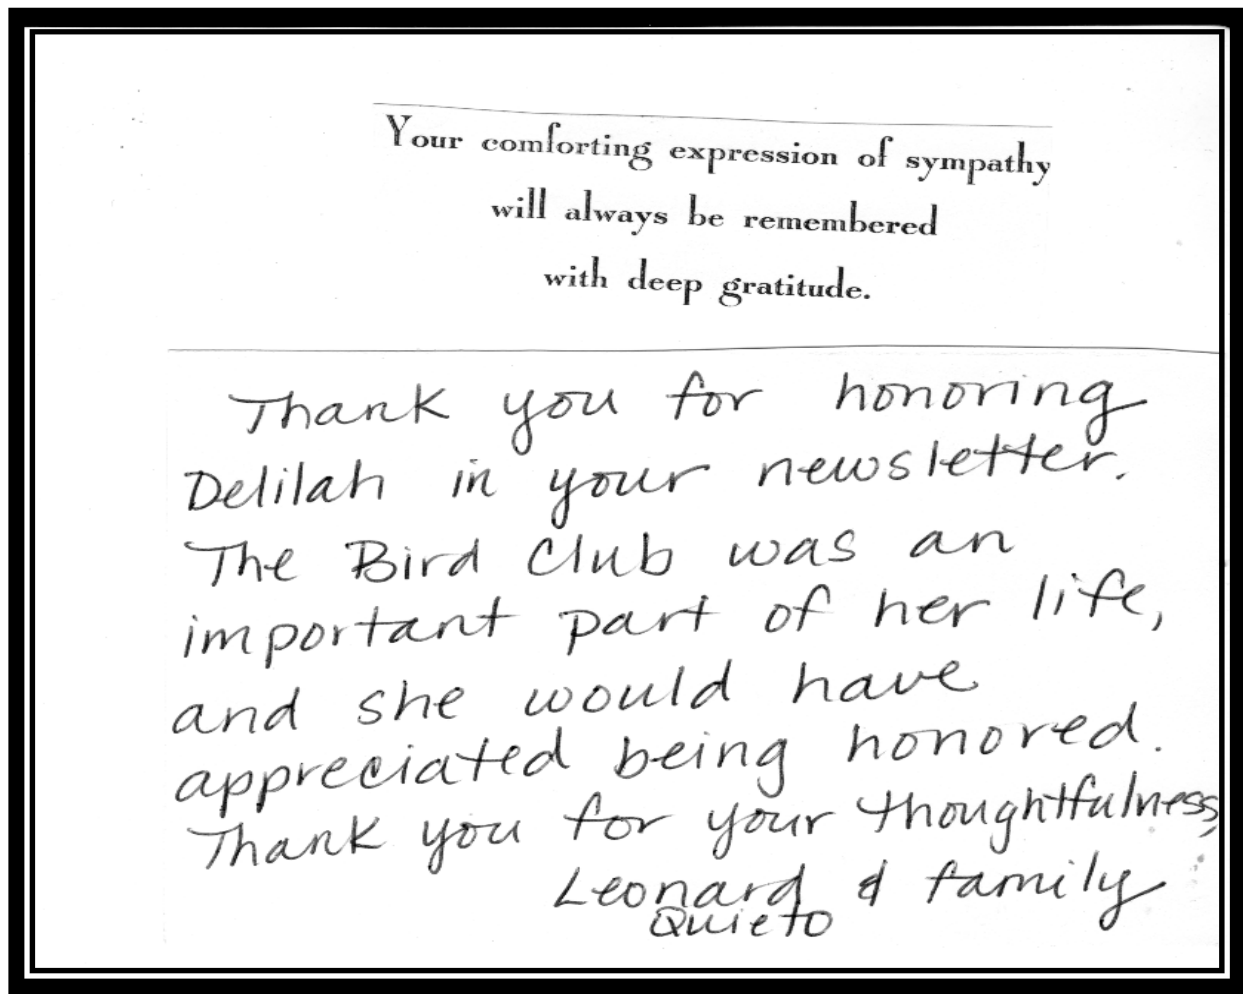 Your comforting expression of sympathy
will always be remembered
with deep gratitude.
Thank you for honoring
Delilah in your newsletter.
The Bird Club was an
important part of her life,
and she would have
appreciated being honored.
Thank you for your thoughtfulness,
Leonard & family
Quieto